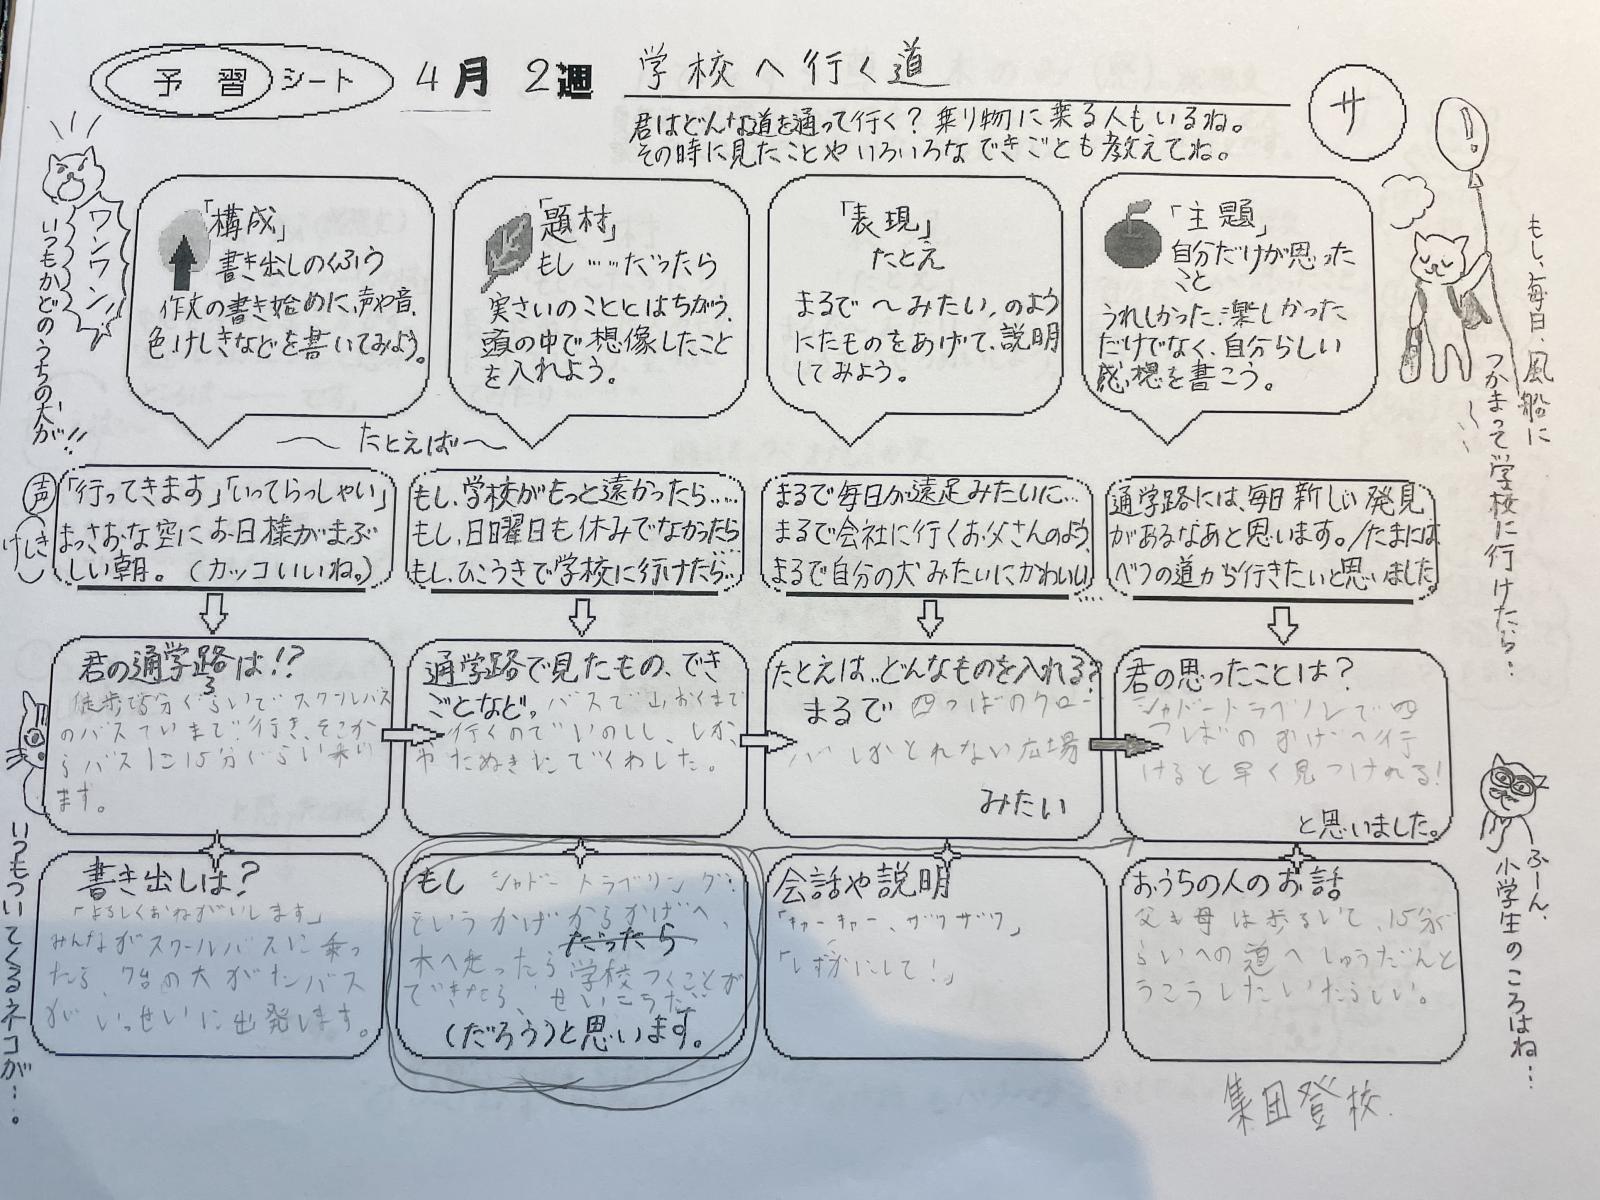 予習シート 4月2週 学校へ行く道
サ
君はどんな道を通って行く？乗り物に乗る人もいるね。
その時に見たことやいろいろなできごとも教えてね。
ワンワン！
いつもかどのうちの犬が!!
「構成」
書き出しのくふう
作文の書き始めに、声や音、
色、けしきなどを書いてみよう。
「題材」
もし……だったら
実さいのこととはちがう、
頭の中で想像したこと
を入れよう。
「表現」
たとえ
まるで〜みたい、のよう
にたものをあげて、説明
してみよう。
「主題」
自分だけが思った
こと
うれしかった、楽しかった
だけでなく、自分らしい
感想を書こう。
！
もし、毎日、風船に
つかまって学校に行けたら…
〜たとえば〜
声
けしき
「行ってきます」「いってらっしゃい」
まっさおな空にお日様がまぶ
しい朝。（カッコいいね。）
もし、学校がもっと遠かったら……
もし、日曜日も休みでなかったら…
もし、ひこうきで学校に行けたら…
まるで毎日が遠足みたいに…
まるで会社に行くお父さんのよう、
まるで自分の犬みたいにかわいい…
通学路には、毎日新しい発見
があるなあと思います。/たまには、
べつの道から行きたいと思いました。
君の通学路は!?
徒歩で5分ぐらいでスクールバス
のバスていまで行き、そこか
らバスに15分ぐらい乗り
ます。
通学路で見たもの、でき
ごとなど。バスで山おくまで
行くのでいのしし、しか、
やたぬきにでくわした。
たとえは…どんなものを入れる？
まるで四つばのクロー
バーしかとれない広場
みたい
君の思ったことは？
シャドートラブリングで四
つばのかげへ行
けると早く見つけれる！
と思いました。
いつもついてくるネコが…。
書き出しは？
「よろしくおねがいします」
みんながスクールバスに乗っ
たら、7台の大がたバス
がいっせいに出発します。
もし シャドートラブリング
というかげからかげへ、
だったら
木へ走ったら学校つくことが
できたら、せいこうだ
（だろう）と思います。
会話や説明
「キャーキャー、ザワザワ」
「しずかにして！」
おうちの人のお話
父も母は歩るいて、15分ぐ
らいへの道へしゅうだんと
うこうしたいたらしい。
集団登校
ふーん、
小学生のころはね…